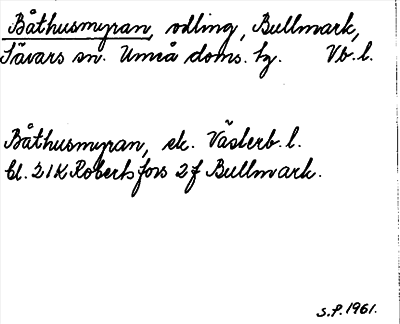 Båthusmyran, odling, Bullmark,
Sävars sn. Umeå doms. hg. Vb. l.
Båthusmyran, ek. Västerb. l.
bl. 21K Robertsfors 2f Bullmark.
S.P. 1961.